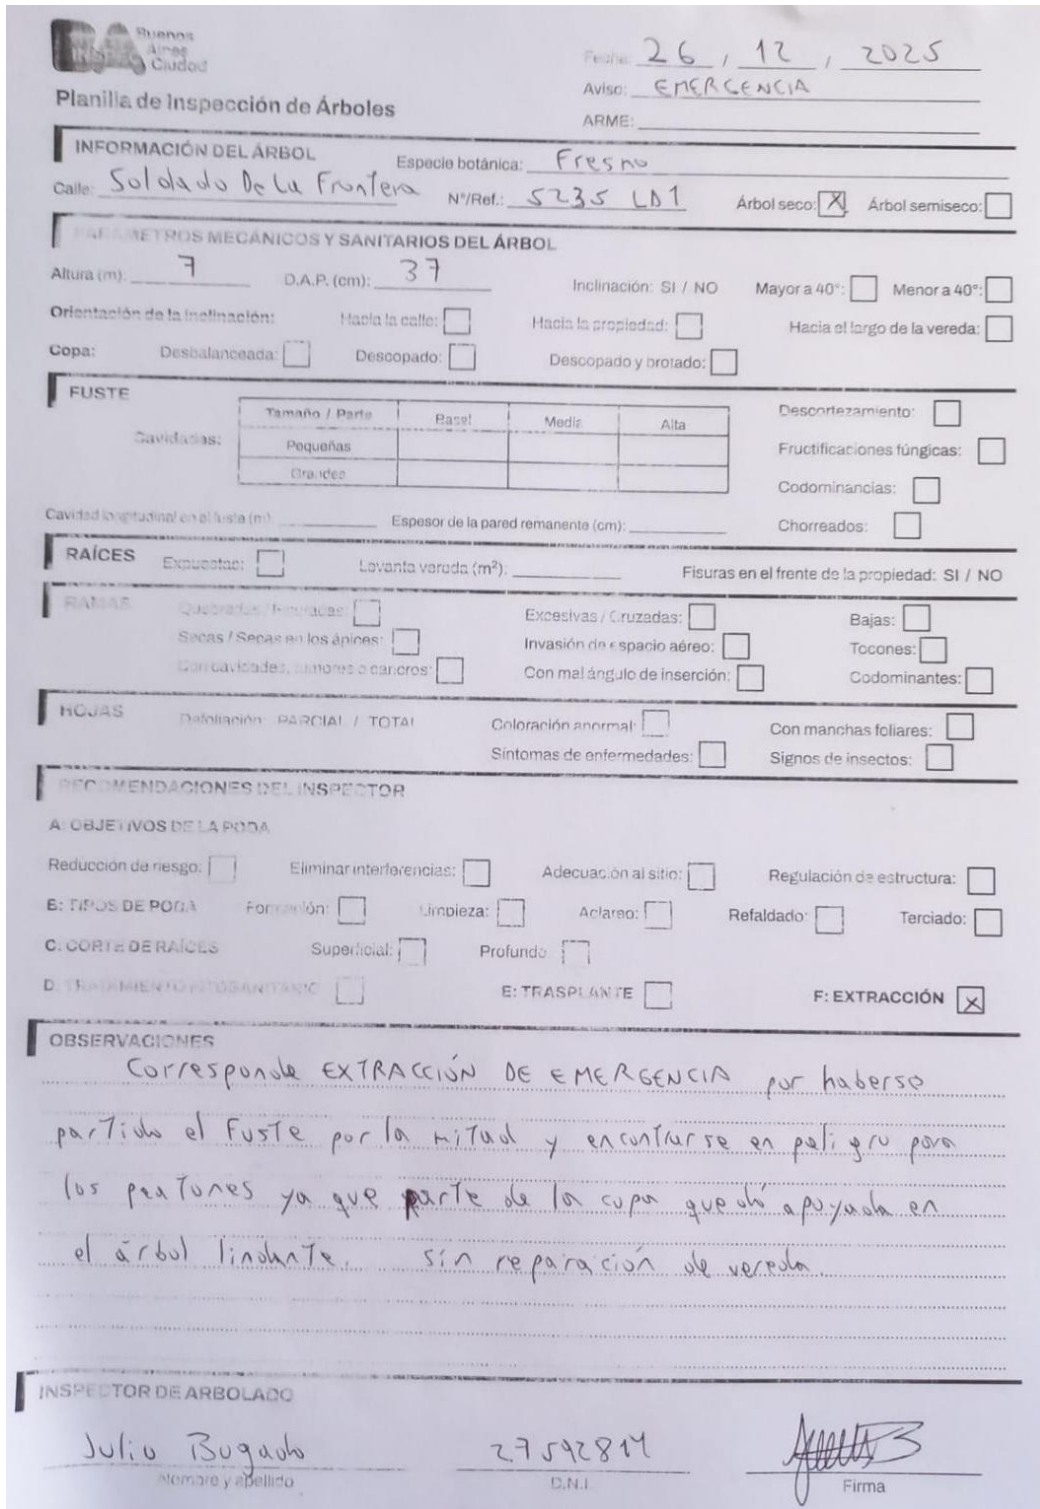 BA Buenos Aires Ciudad
Fecha: 26 / 12 / 2025
Aviso: EMERGENCIA
Planilla de Inspección de Árboles
ARME:
INFORMACIÓN DEL ÁRBOL Especie botánica: Fresno
Calle: Soldado De La Frontera N°/Ref.: 5235 LD1 Árbol seco: X Árbol semiseco:
PARÁMETROS MECÁNICOS Y SANITARIOS DEL ÁRBOL
Altura (m): 7 D.A.P. (cm): 37 Inclinación: SI / NO Mayor a 40°: Menor a 40°:
Orientación de la inclinación: Hacia la calle: Hacia la propiedad: Hacia el largo de la vereda:
Copa: Desbalanceada: Descopado: Descopado y brotado:
FUSTE
Descortezamiento:
Tamaño / Parte Basal Media Alta
Cavidades: Pequeñas
Fructificaciones fúngicas:
Grandes
Codominancias:
Cavidad longitudinal en el fuste (m): Espesor de la pared remanente (cm): Chorreados:
RAÍCES Expuestas: Levanta vereda (m²): Fisuras en el frente de la propiedad: SI / NO
RAMAS Quebradas / Fisuradas: Excesivas / Cruzadas: Bajas:
Secas / Secas en los ápices: Invasión de espacio aéreo: Tocones:
Con cavidades, tumores o cancros: Con mal ángulo de inserción: Codominantes:
HOJAS Defoliación: PARCIAL / TOTAL Coloración anormal: Con manchas foliares:
Síntomas de enfermedades: Signos de insectos:
RECOMENDACIONES DEL INSPECTOR
A: OBJETIVOS DE LA PODA
Reducción de riesgo: Eliminar interferencias: Adecuación al sitio: Regulación de estructura:
B: TIPOS DE PODA Formación: Limpieza: Aclareo: Refaldado: Terciado:
C: CORTE DE RAÍCES Superficial: Profundo:
D: TRATAMIENTO FITOSANITARIO E: TRASPLANTE F: EXTRACCIÓN X
OBSERVACIONES
Corresponde EXTRACCIÓN DE EMERGENCIA por haberse
partido el fuste por la mitad y encontrarse en peligro para
los peatones ya que parte de la copa quedó apoyada en
el árbol lindante. sin reparación de vereda.
INSPECTOR DE ARBOLADO
Julio Bugado 27592814
Nombre y apellido D.N.I. Firma